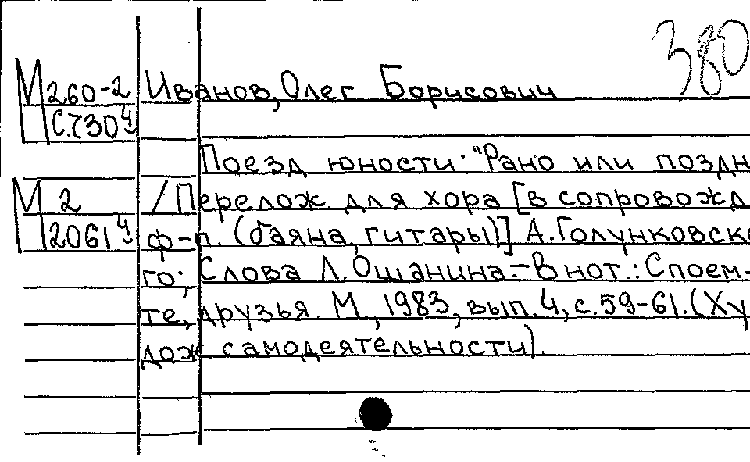 380
М260-2 Иванов, Олег Борисович
С.730ч
Поезд юности: "Рано или поздн
М 2 / Перелож. для хора [в сопровожд.
2061ч ф-п. (баяна, гитары)] А.Голунковско
го; Слова Л. Ошанина.-В нот.: Споем-
те, друзья. М., 1983, вып. 4, с. 59-61. (Ху
дож. самодеятельности).